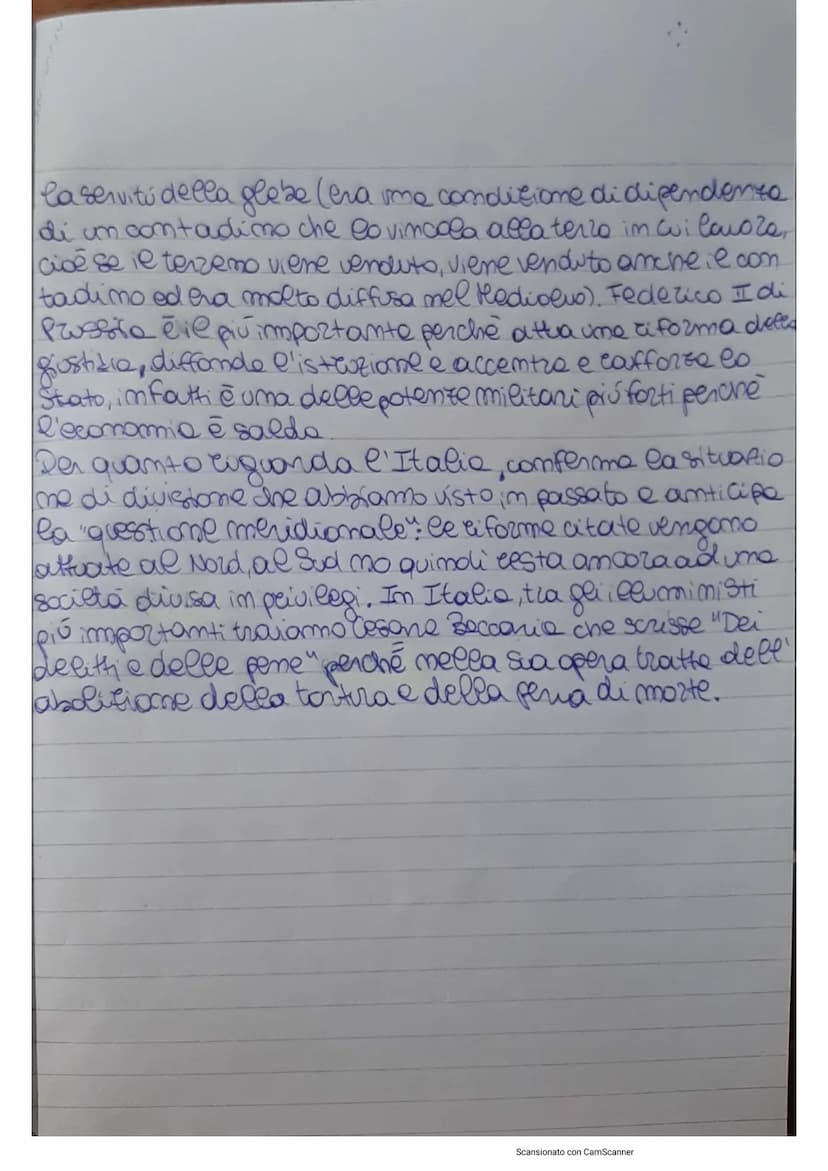 la servitú della glebe (era una condizione di dipendenza
di un contadino che lo vincola alla terra in cui lavora,
cioè se il terreno viene venduto, viene venduto anche il con
tadino ed era molto diffusa nel Medioevo). Federico II di
Prussia è il piú importante perchè attua una riforma della
giustizia, diffonde l'istruzione e accentra e rafforza lo
Stato, infatti è una delle potenze militari piú forti perchè
l'economia è salda.
Per quanto riguarda l'Italia, conferma la situazio
ne di divisione che abbiamo visto in passato e anticipa
la "questione meridionale": le riforme citate vengono
attuate al Nord, al Sud no quindi resta ancora ad una
società divisa in privilegi. In Italia, tra gli illuministi
piú importanti troviamo Cesare Beccaria che scrisse "Dei
delitti e delle pene" perchè nella sua opera tratta dell'
abolizione della tortura e della pena di morte.
Scansionato con CamScanner